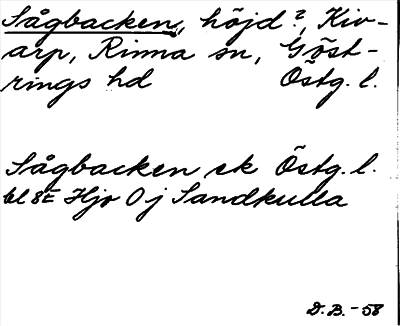 Sågbacken, höjd?, Kiv-
arp, Rinna sn, Göst-
rings hd Östg. l.
Sågbacken ek Östg. l.
bl 8E Hjo O j Sandkulla
D. B. - 58